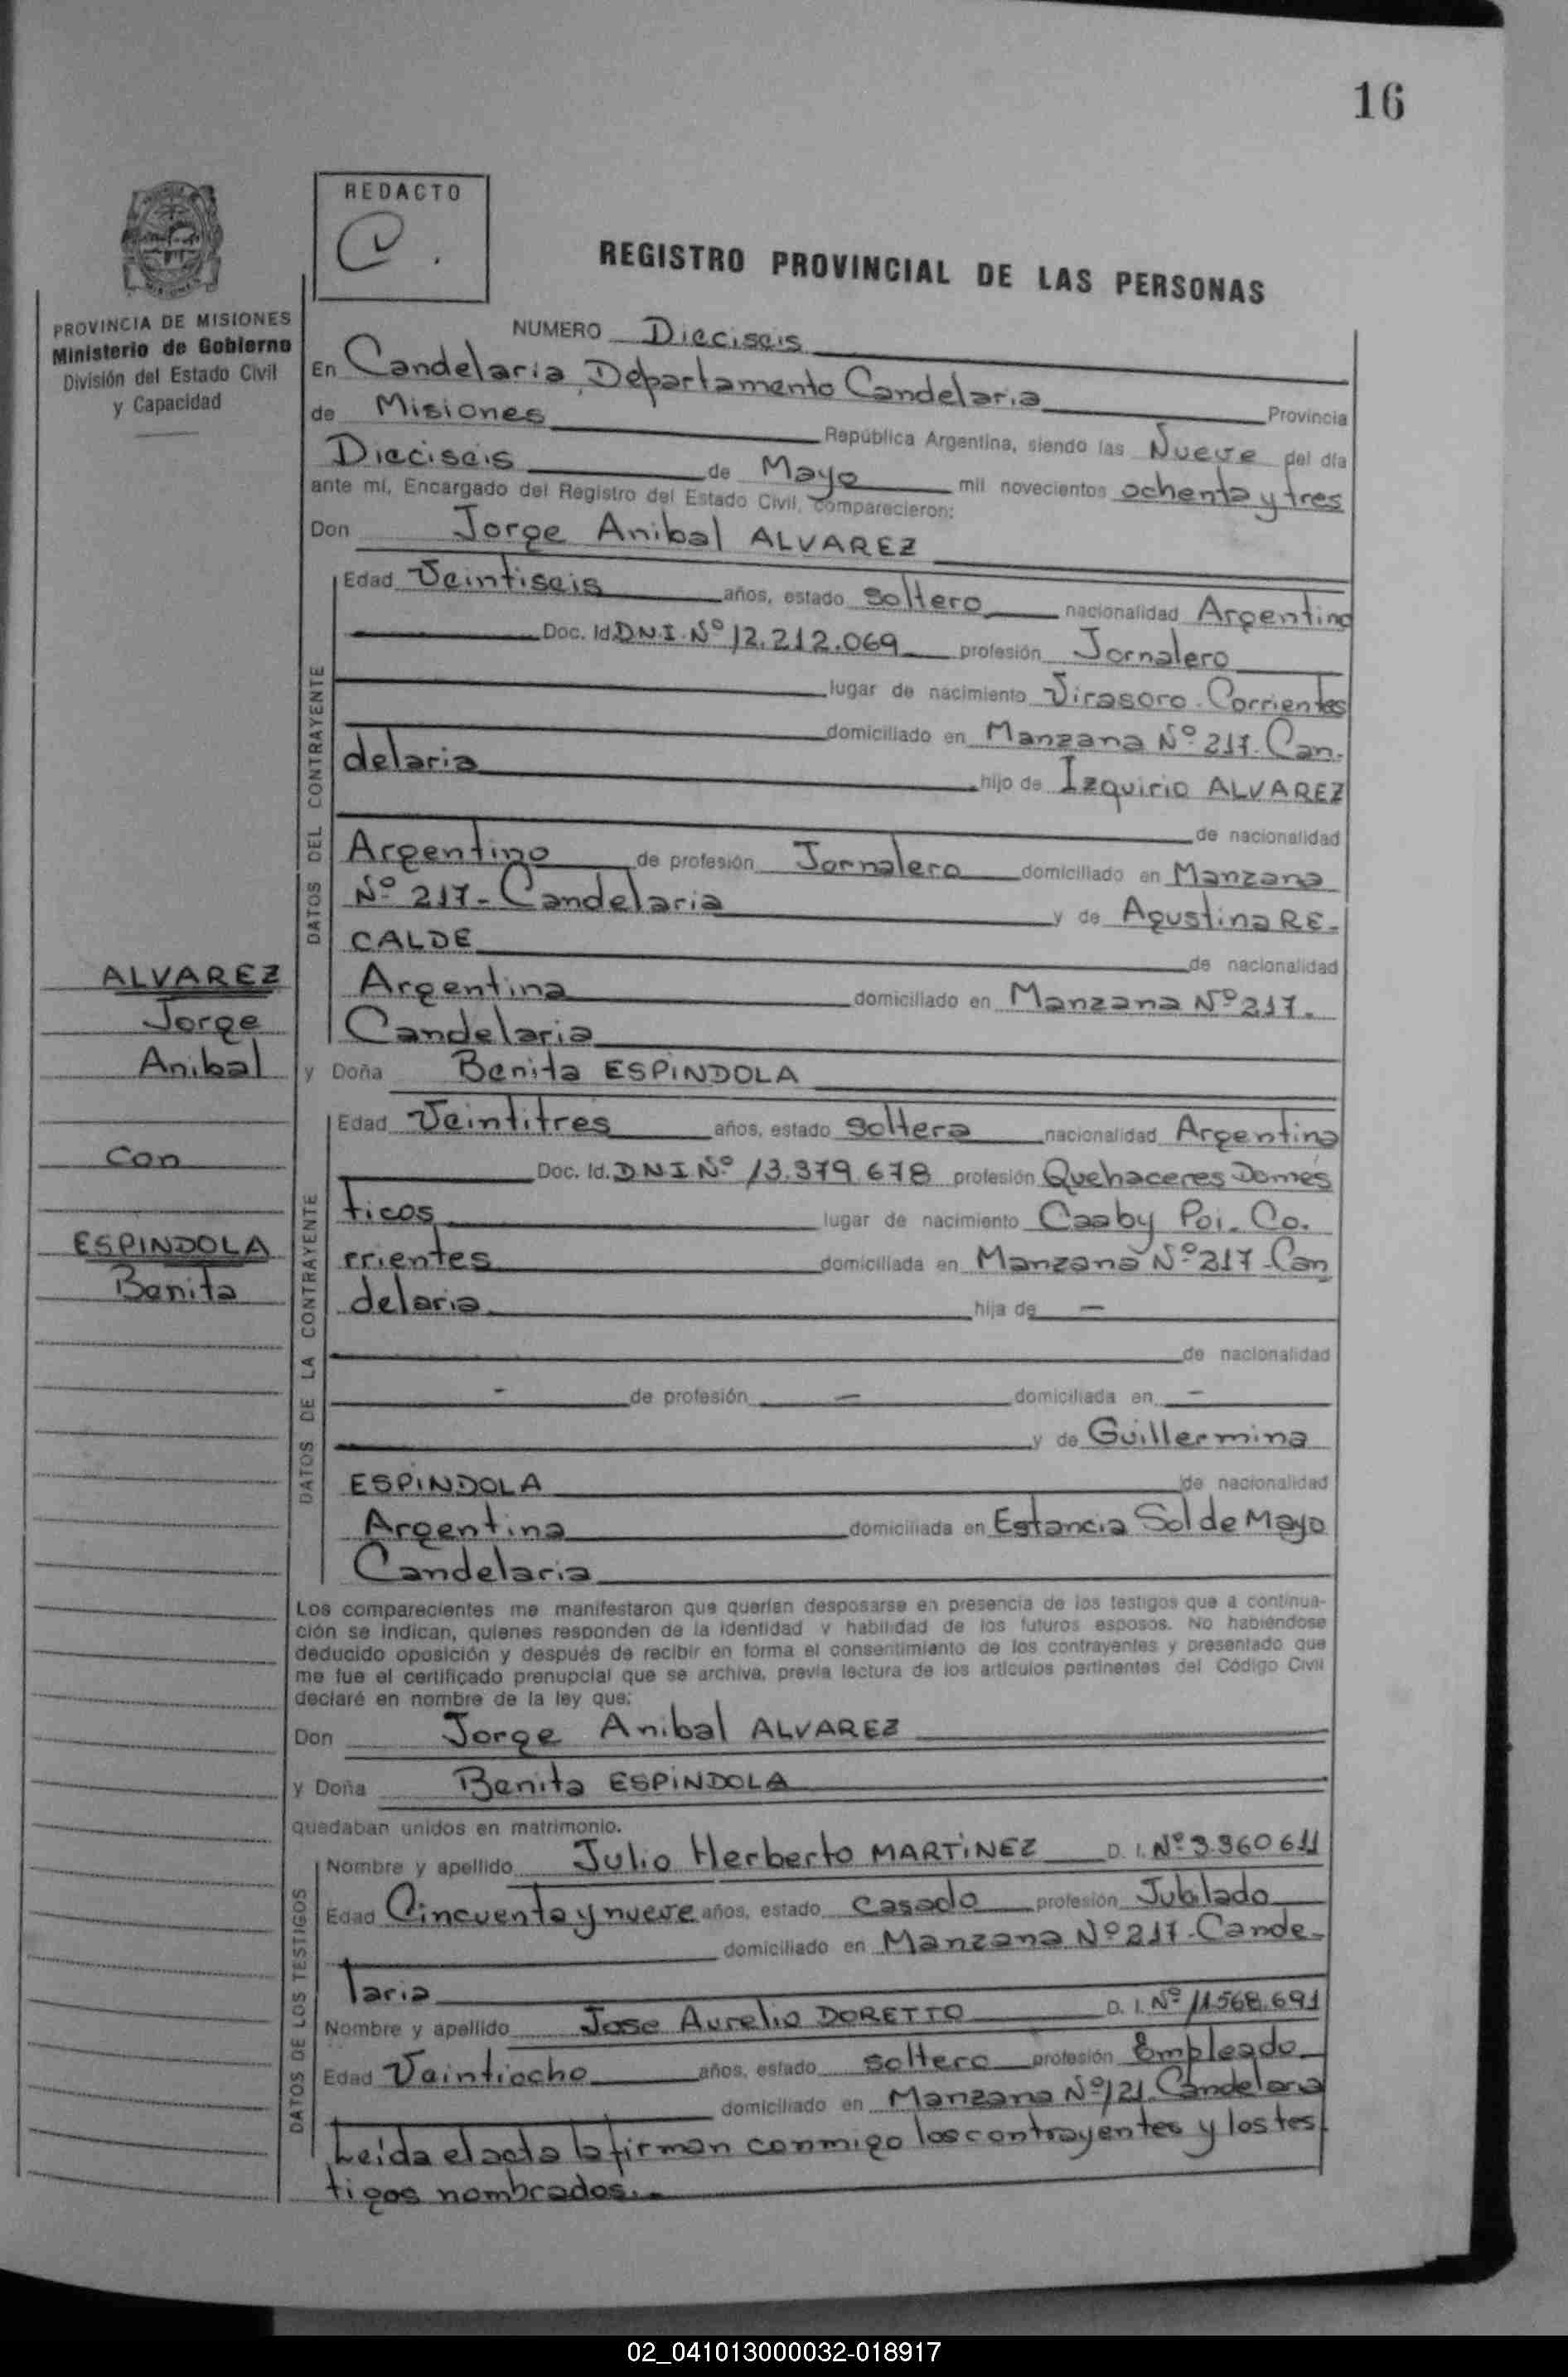 16
REDACTO
REGISTRO PROVINCIAL DE LAS PERSONAS
PROVINCIA DE MISIONES
Ministerio de Gobierno
División del Estado Civil
y Capacidad
NUMERO Dieciseis
En Candelaria, Departamento Candelaria Provincia
de Misiones República Argentina, siendo las Nueve del día
Dieciseis de Mayo mil novecientos ochenta y tres
ante mí, Encargado del Registro del Estado Civil, comparecieron:
Don Jorge Anibal ALVAREZ
DATOS DEL CONTRAYENTE
Edad Veintiseis años, estado Soltero nacionalidad Argentino
Doc. Id. D.N.I. Nº 12.212.069 profesión Jornalero
lugar de nacimiento Virasoro - Corrientes
domiciliado en Manzana Nº 217. Can-
delaria hijo de Izquirio ALVAREZ
de nacionalidad
Argentino de profesión Jornalero domiciliado en Manzana
Nº 217 - Candelaria y de Agustina RE-
CALDE de nacionalidad
Argentina domiciliado en Manzana Nº 217.
Candelaria
ALVAREZ
Jorge
Anibal
Con
ESPINDOLA
Benita
y Doña Benita ESPINDOLA
DATOS DE LA CONTRAYENTE
Edad Veintitres años, estado Soltera nacionalidad Argentina
Doc. Id. DNI Nº 13.379.678 profesión Quehaceres Domes
ticos lugar de nacimiento Caaby Poi - Co.
rrientes domiciliada en Manzana Nº 217 - Can
delaria hija de —
de nacionalidad
- de profesión — domiciliada en —
y de Guillermina
ESPINDOLA de nacionalidad
Argentina domiciliada en Estancia Sol de Mayo
Candelaria
Los comparecientes me manifestaron que querían desposarse en presencia de los testigos que a continua-
ción se indican, quienes responden de la identidad y habilidad de los futuros esposos. No habiéndose
deducido oposición y después de recibir en forma el consentimiento de los contrayentes y presentado que
me fue el certificado prenupcial que se archiva, previa lectura de los artículos pertinentes del Código Civil
declaré en nombre de la ley que:
Don Jorge Anibal ALVAREZ
y Doña Benita ESPINDOLA
quedaban unidos en matrimonio.
DATOS DE LOS TESTIGOS
Nombre y apellido Julio Herberto MARTINEZ D. I. Nº 3.360 611
Edad Cincuenta y nueve años, estado Casado profesión Jubilado
domiciliado en Manzana Nº 217 - Cande-
laria
Nombre y apellido Jose Aurelio DORETTO D. I. Nº 11.568.691
Edad Veintiocho años, estado soltero profesión Empleado
domiciliado en Manzana Nº 121. Candelaria
Leida el acta la firman conmigo los contrayentes y los tes
tigos nombrados.-
02_041013000032-018917